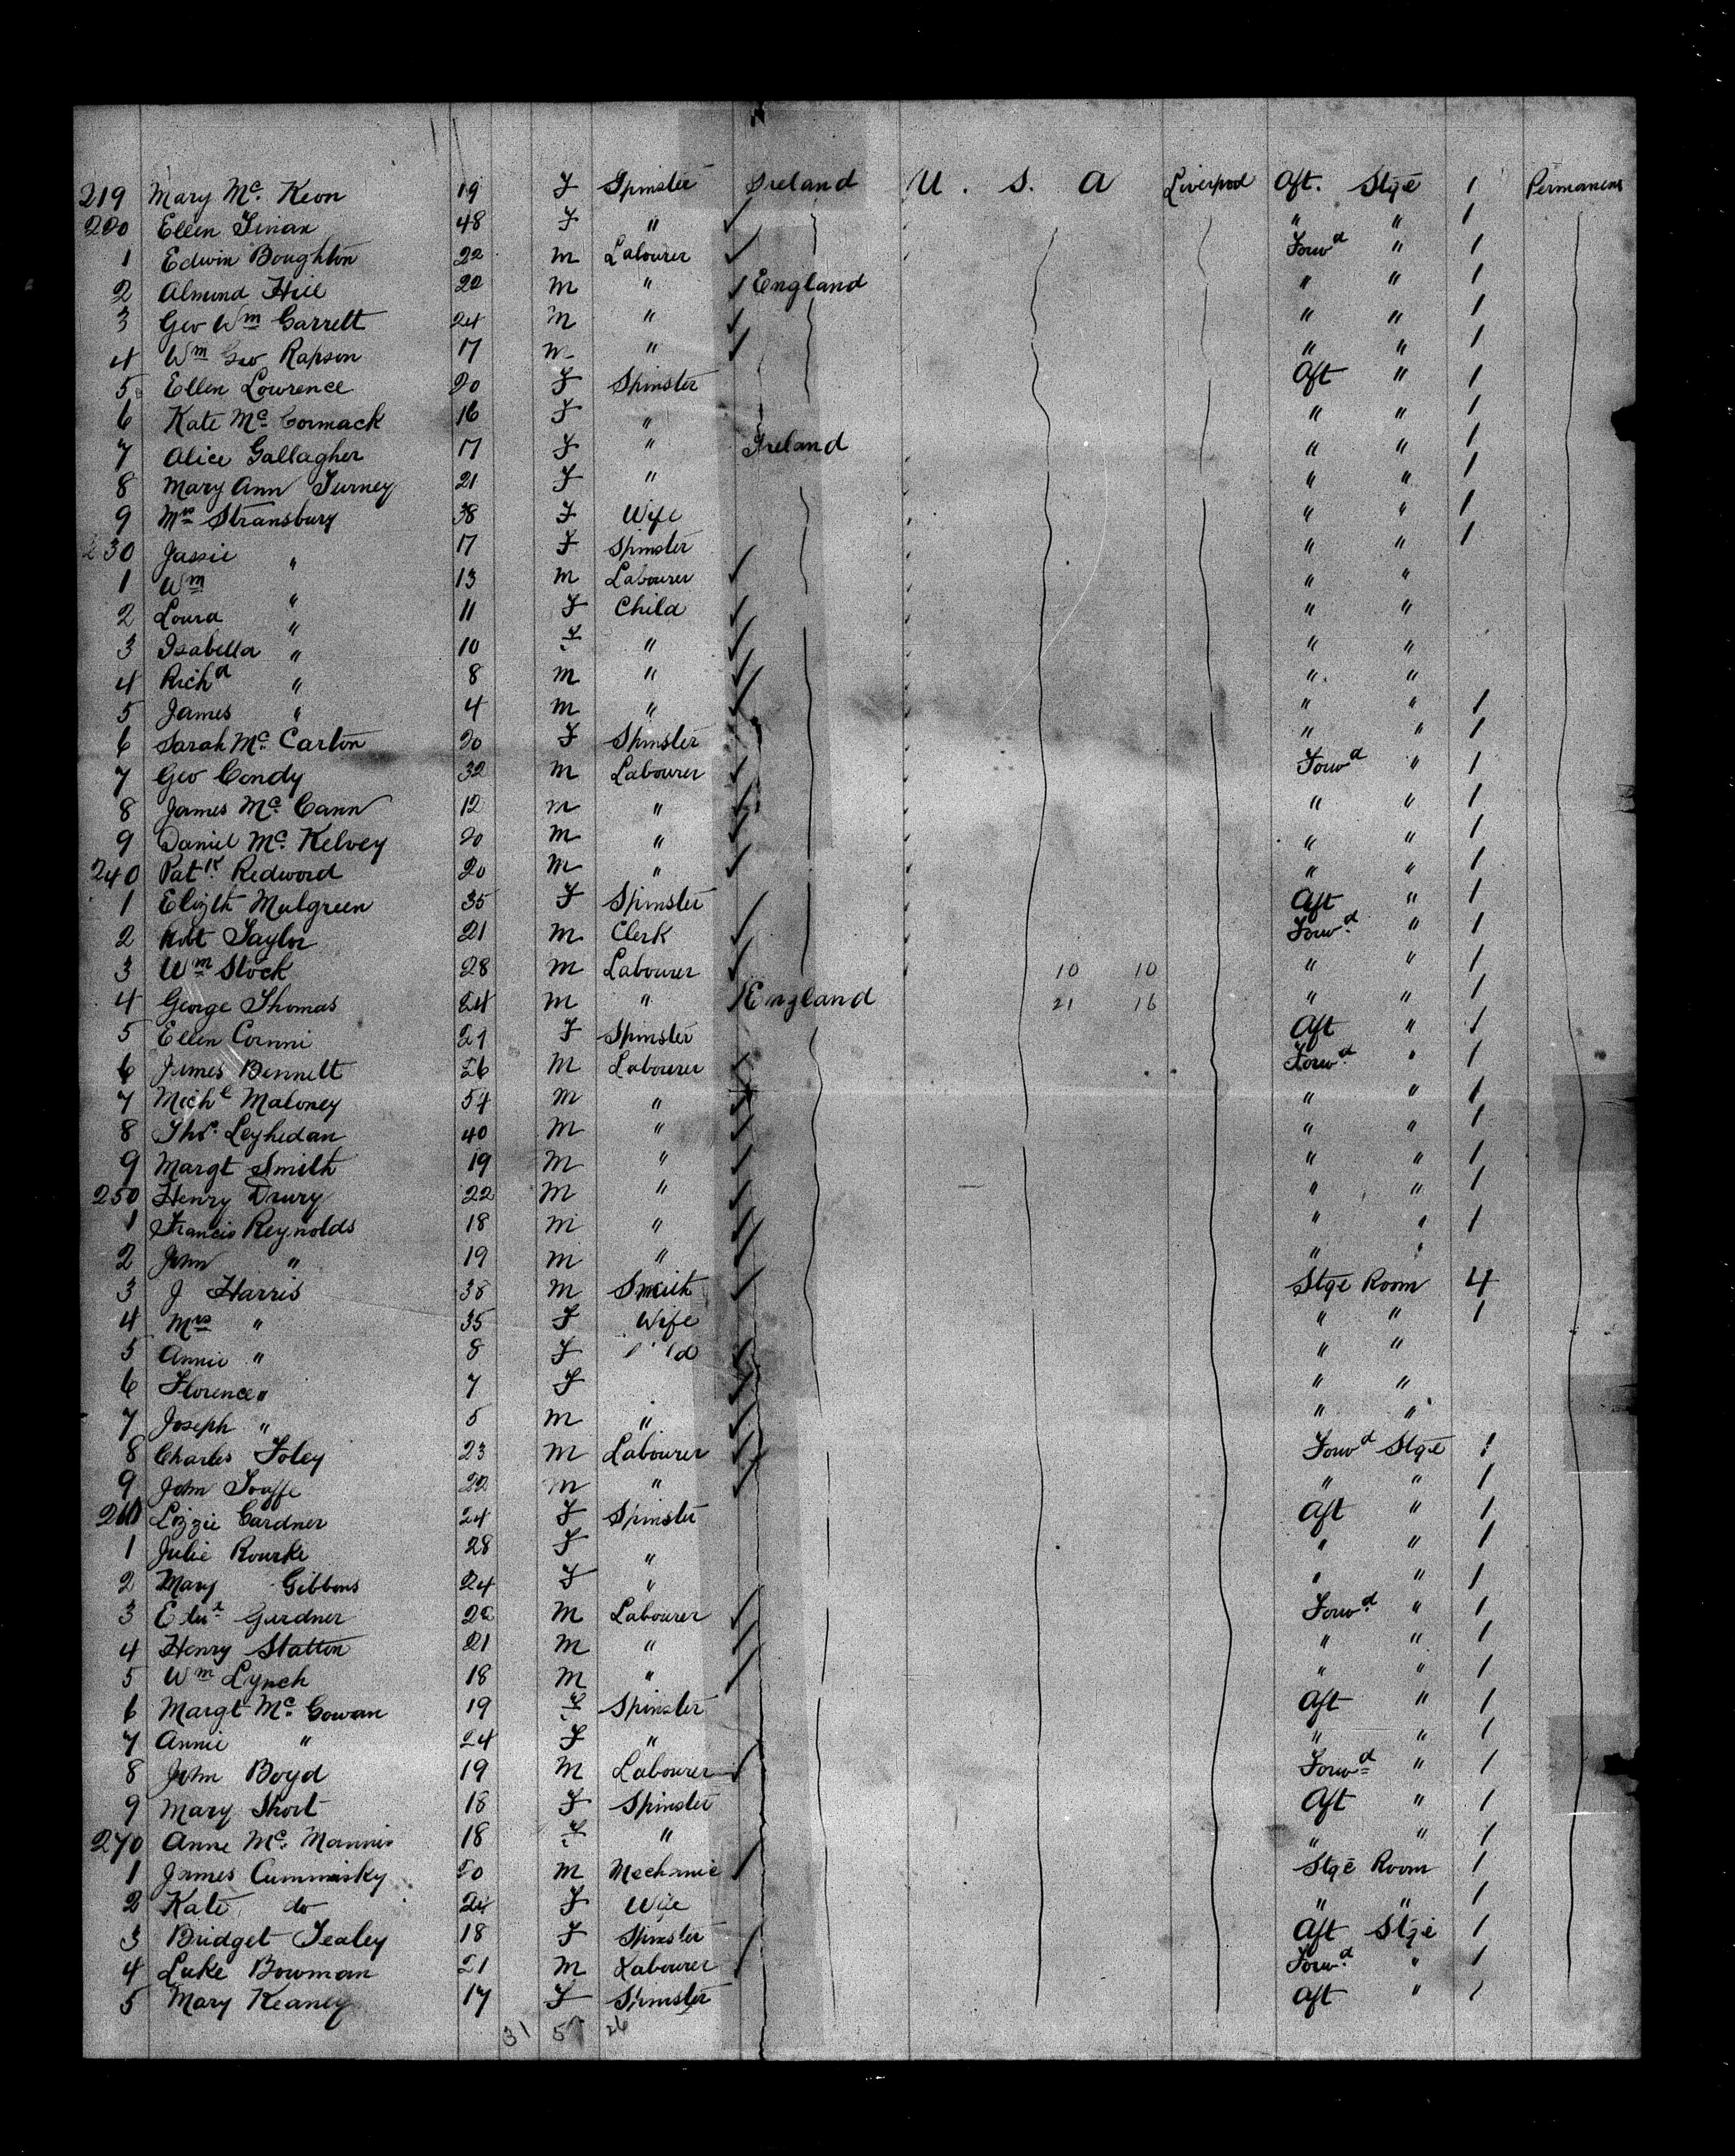 219 Mary Mc. Keon 19 F Spinster Ireland U. S. A Liverpool Aft. Stge 1 Permanent
220 Ellen Finan 48 F " " " 1
1 Edwin Boughton 22 m Labourer Forwd " 1
2 Almund Hill 20 m " England " " 1
3 Geo Wm Garrett 24 m " " " 1
4 Wm Geo Rapson 17 m " " " 1
5 Ellen Lowrence 20 F Spinster Aft " 1
6 Kate Mc. Cormack 16 F " " " 1
7 Alice Gallagher 17 F " Ireland " " 1
8 Mary Ann Turney 21 F " " " 1
9 Mrs Stransbury 38 F Wife " " 1
230 Jassie " 17 F Spinster " " 1
1 Wm " 13 m Labourer " "
2 Loura " 11 F Child " "
3 Isabella " 10 F " " "
4 Richd " 8 m " " "
5 James " 4 m " " " 1
6 Sarah Mc. Carton 20 F Spinster " " 1
7 Geo Condy 32 m Labourer Forwd " 1
8 James Mc. Cann 12 m " " " 1
9 Daniel Mc. Kelvey 20 m " " " 1
240 Patk. Redword 20 m " " " 1
1 Elizth Mulgreen 35 F Spinster Aft " 1
2 Robt Taylor 21 m Clerk Forwd " 1
3 Wm Stock 28 m Labourer 10 10 " " 1
4 George Thomas 24 m " England 21 16 " " 1
5 Ellen Corini 21 F Spinster Aft " 1
6 James Bennett 26 m Labourer Forwd " 1
7 Michl Maloney 54 m " " " 1
8 Thos. Leyhedan 40 m " " " 1
9 Margt Smith 19 m " " " 1
250 Henry Drury 22 m " " " 1
1 Francis Reynolds 18 m " " " 1
2 John " 19 m " " "
3 J Harris 38 m Smith Stge Room 4
4 Mrs " 35 F Wife " " 1
5 Annie " 8 F " "
6 Florence " 7 F " "
7 Joseph " 5 m " " "
8 Charles Foley 23 m Labourer Forwd Stge 1
9 John 22 m " " " 1
260 Lizzie Gardner 24 F Spinster Aft " 1
1 Julie Rourke 28 F " " " 1
2 Mary Gibbons 24 F " " " 1
3 Edwd Gardner 22 m Labourer Forwd " 1
4 Henry Statton 21 m " " " 1
5 Wm Lynch 18 m " " " 1
6 Margt Mc. Gowan 19 F Spinster Aft " 1
7 Annie " 24 F " " " 1
8 John Boyd 19 m Labourer Forwd " 1
9 Mary Short 18 F Spinster Aft " 1
270 Anne Mc. Mannis 18 F " " " 1
1 James Cummisky 20 m Mechanic Stge Room 1
2 Kate do 24 F Wife " " 1
3 Bridget Fealey 18 F Spinster Aft Stge 1
4 Luke Bowman 21 m Labourer Forwd " 1
5 Mary Keaney 17 F Spinster Aft " 1
31 57 26